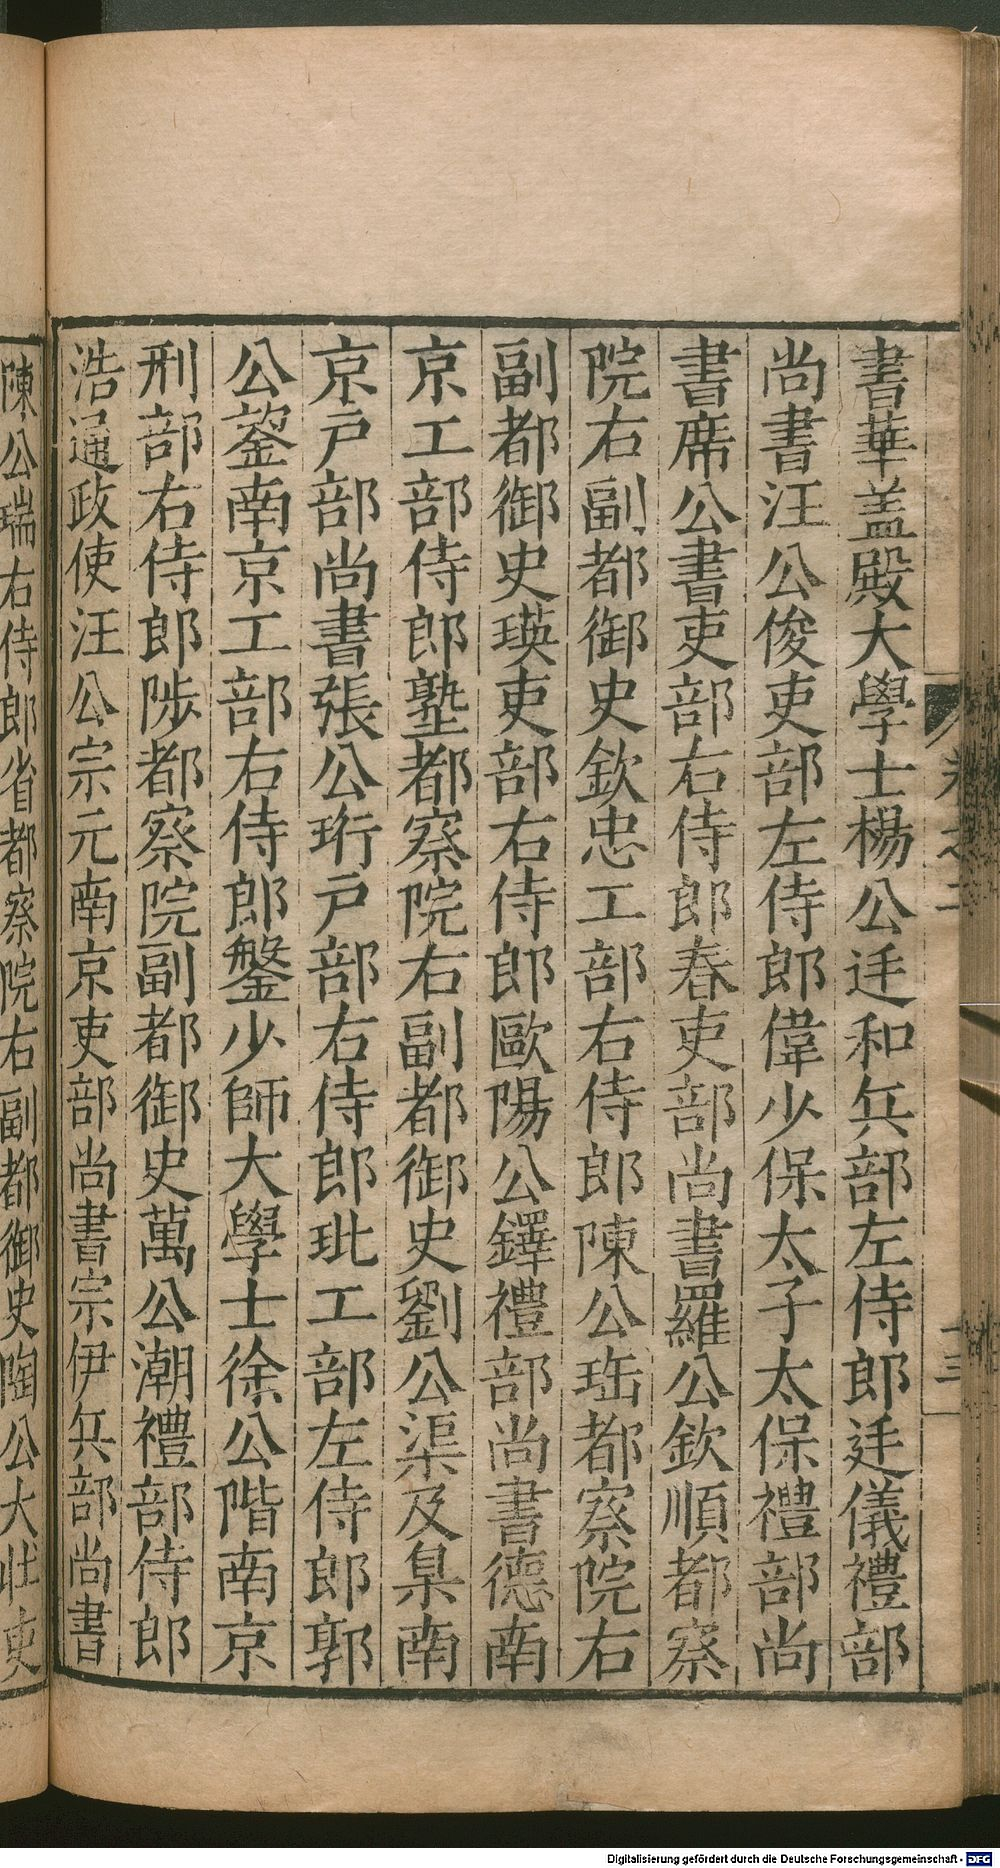 書華盖殿大學士楊公廷和兵部左侍郎廷儀禮部
尚書汪公俊吏部左侍郎偉少保太子太保禮部尚
書席公書吏部右侍郎春吏部尚書羅公欽順都察
院右副都御史欽忠工部右侍郎陳公珤都察院右
副都御史瑛吏部右侍郎歐陽公鐸禮部尚書德南
京工部侍郎塾都察院右副都御史劉公渠及臬南
京戶部尚書張公珩戶部右侍郎玭工部左侍郎郭
公鋆南京工部右侍郎鏊少師大學士徐公階南京
刑部右侍郎陟都察院副都御史萬公潮禮部侍郎
浩通政使汪公宗元南京吏部尚書宗伊兵部尚書
陳公瑞右侍郎省都察院右副都御史陶公大壯吏
卷之二
十三
Digitalisierung gefördert durch die Deutsche Forschungsgemeinschaft - DFG